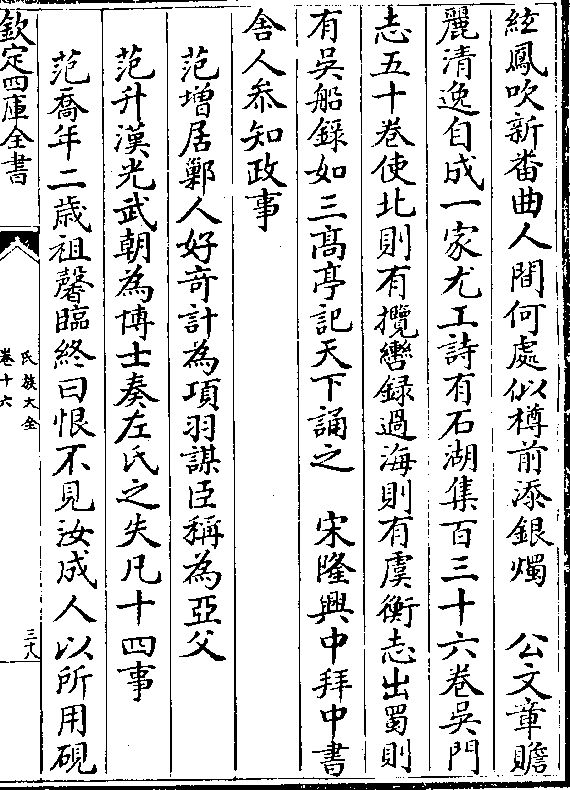 絃鳳吹新番曲人間何處似樽前添銀燭　公文章贍
麗清逸自成一家尤工詩有石湖集百三十六卷吳門
志五十卷使北則有攬轡録過海則有虞衡志出蜀則
有吳船録如三髙亭記天下誦之　宋隆興中拜中書
舎人叅知政事
范增居鄛人好竒計為項羽謀臣稱為亞父
范升漢光武朝為博士奏左氏之失凡十四事
范喬年二歳祖馨臨終曰恨不見汝成人以所用硯
欽定四庫全書
氏族大全
卷十六
三十八